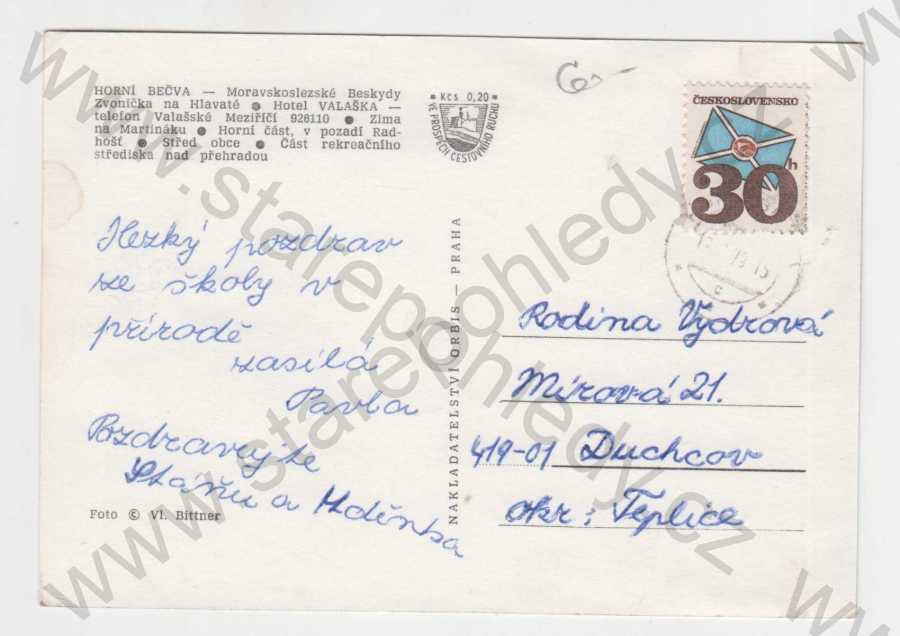 HORNÍ BEČVA — Moravskoslezské Beskydy
Zvonička na Hlavaté ● Hotel VALAŠKA —
telefon Valašské Meziříčí 926110 ● Zima
na Martináku ● Horní část, v pozadí Rad-
hošť ● Střed obce ● Část rekreačního
střediska nad přehradou
Kčs 0,20
VE PROSPĚCH CESTOVNÍHO RUCHU
ČESKOSLOVENSKO
30h
Hezký pozdrav
ze školy v
přírodě
zasílá
Pavla
Pozdravujte
Staňu a Zdeňka
Foto © Vl. Bittner
NAKLADATELSTVÍ ORBIS — PRAHA
Rodina Vydrová
Mírová 21.
419-01 Duchcov
okr: Teplice
www.starepohledy.cz